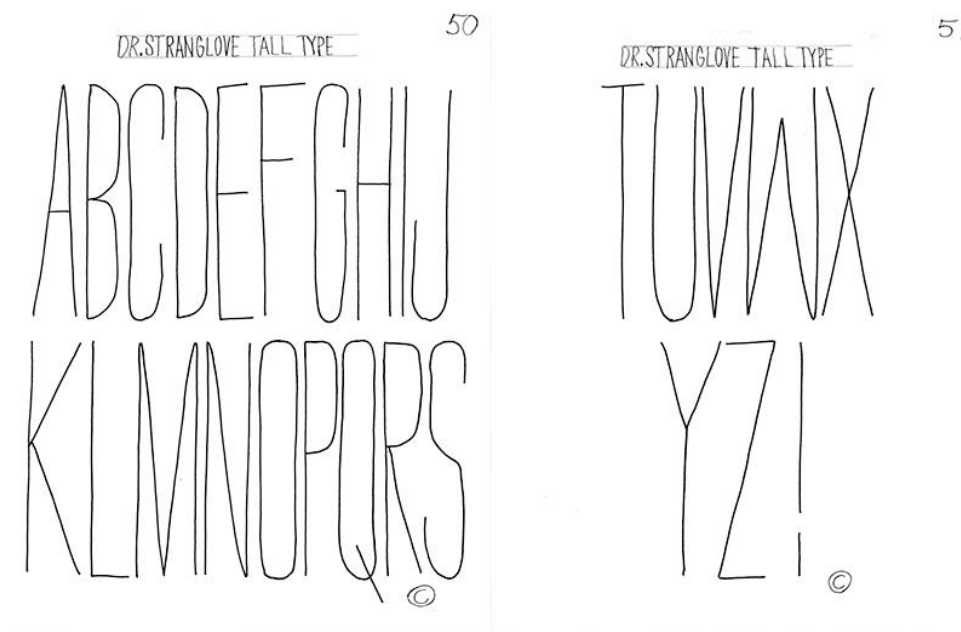 50
DR.STRANGLOVE TALL TYPE
ABCDEFGHIJ
KLMNOPQRS
©
5
DR.STRANGLOVE TALL TYPE
TUVWX
YZ!
©